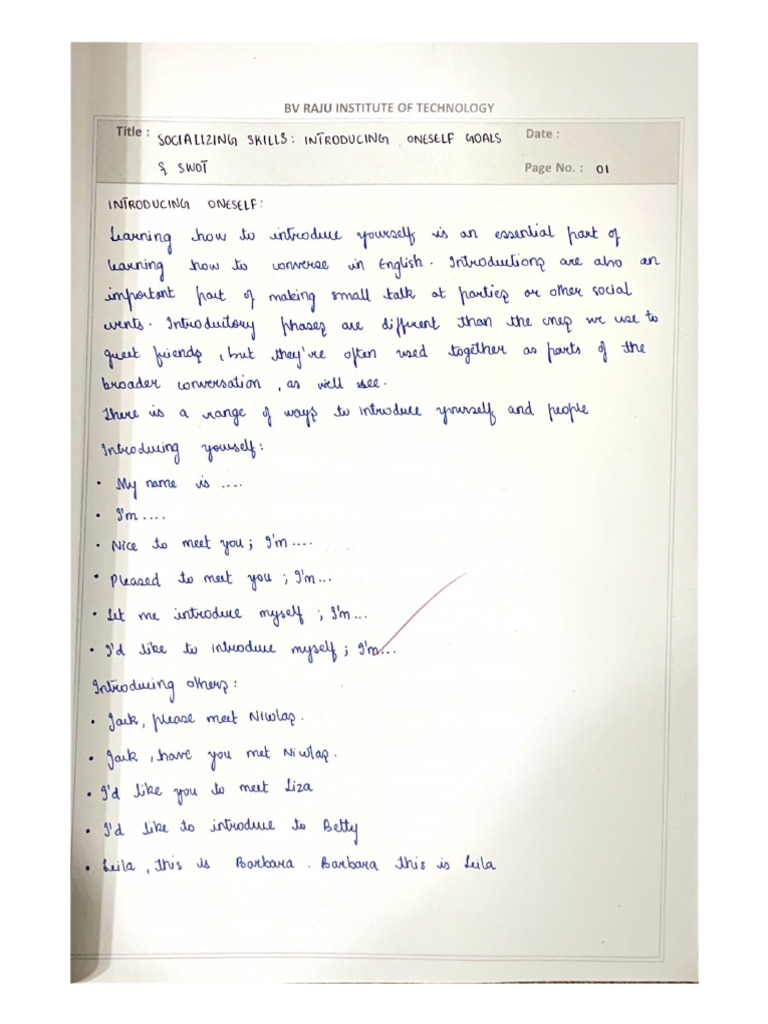 BV RAJU INSTITUTE OF TECHNOLOGY
Title : SOCIALIZING SKILLS: INTRODUCING ONESELF GOALS
Date :
& SWOT
Page No. : 01
INTRODUCING ONESELF:
Learning how to introduce yourself is an essential part of
learning how to converse in English. Introductions are also an
important part of making small talk at parties or other social
events. Introductory phases are different than the ones we use to
greet friends, but they're often used together as parts of the
broader conversation, as well see.
There is a range of ways to introduce yourself and people
Introducing yourself:
• My name is ....
• I'm ....
• Nice to meet you; I'm ....
• Pleased to meet you; I'm...
• Let me introduce myself; I'm...
• I'd like to introduce myself; I'm...
Introducing others:
• Jack, please meet Nicolas.
• Jack, have you met Nicolas.
• I'd like you to meet Liza
• I'd like to introduce to Betty
• Leila, this is Barbara. Barbara this is Leila